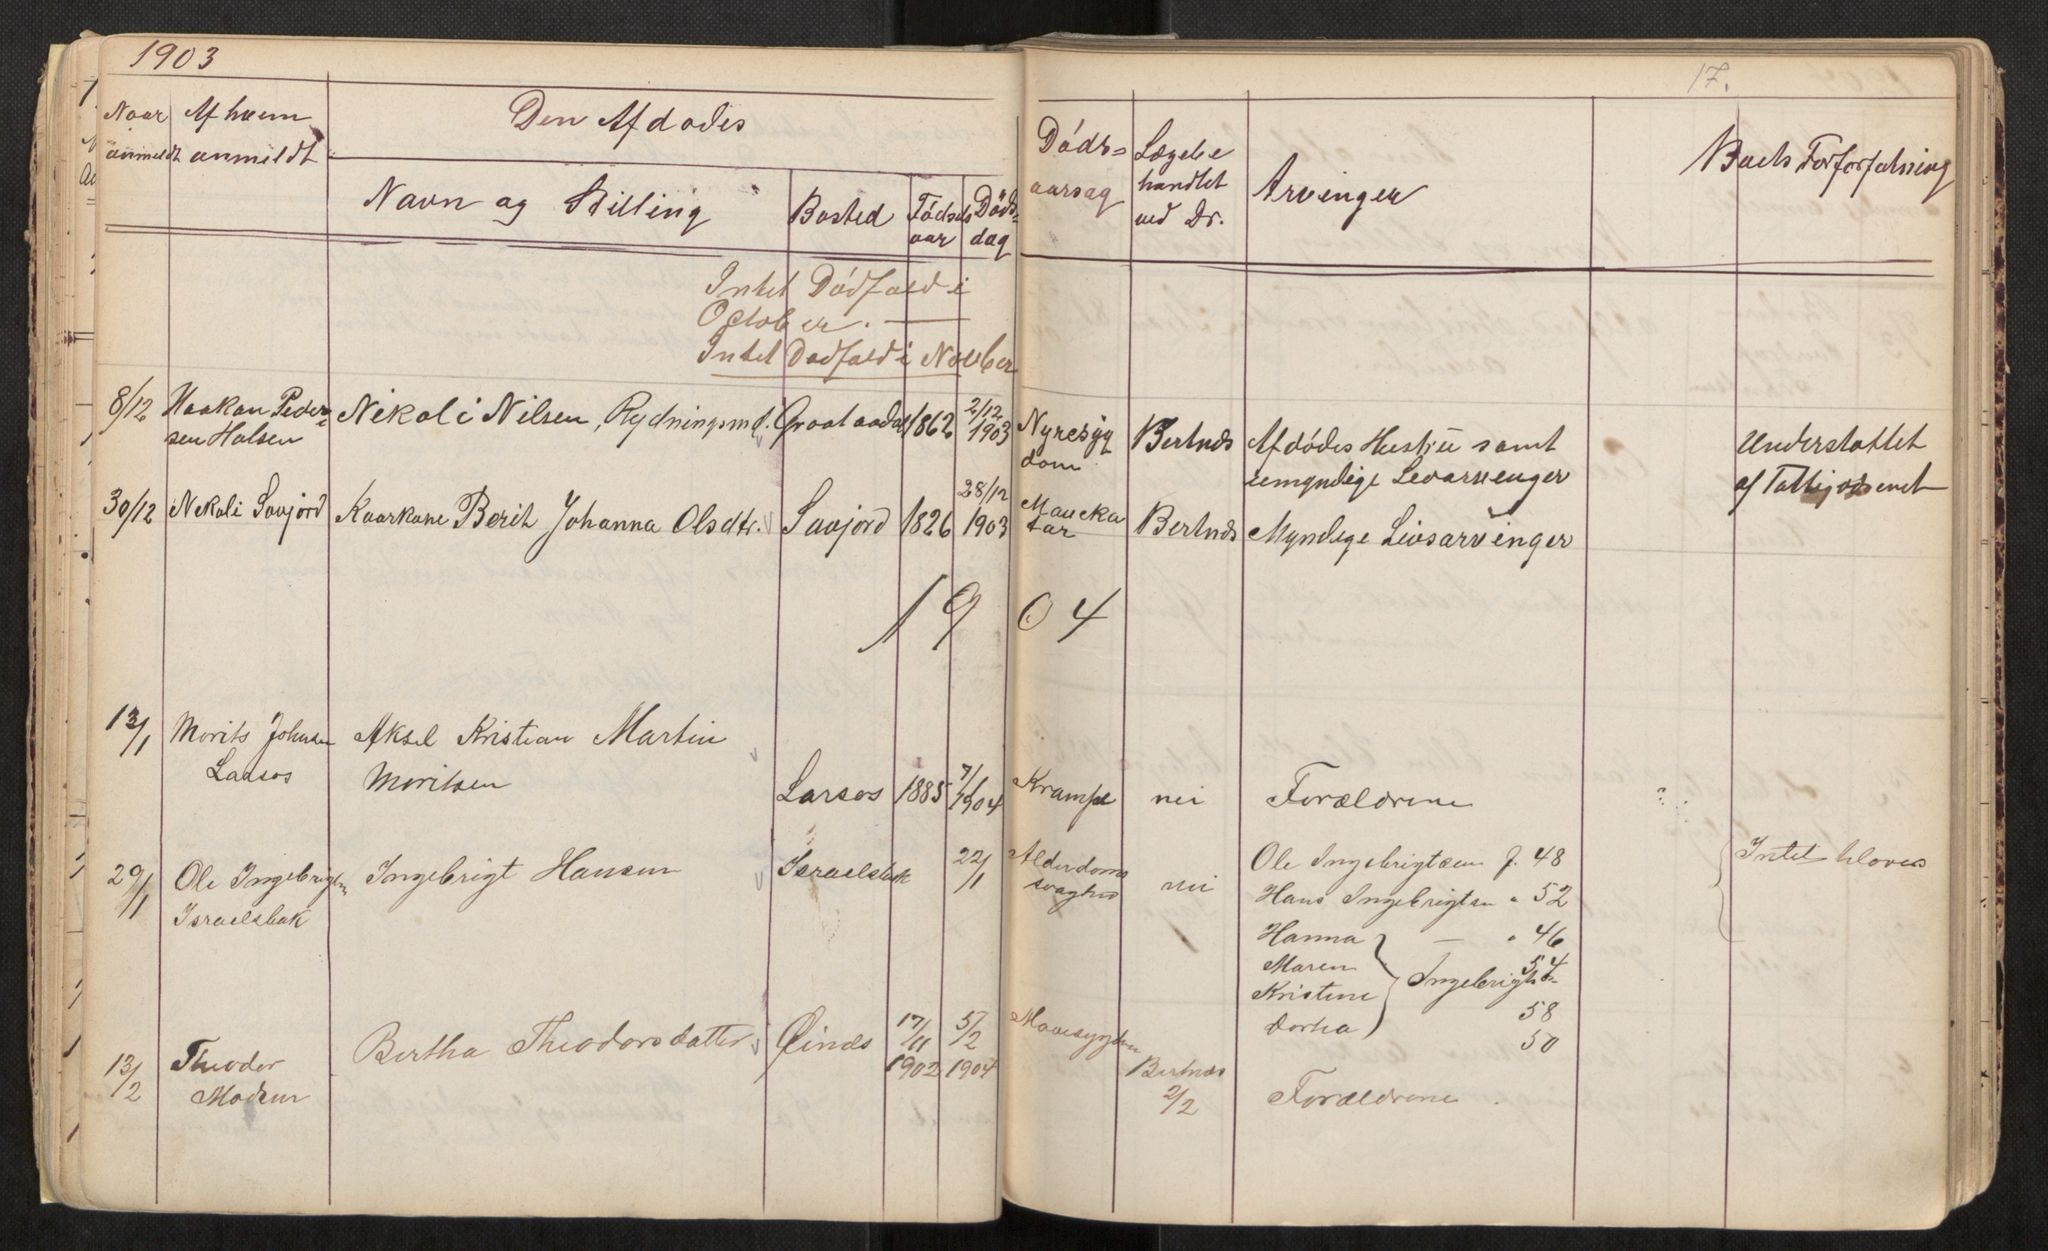 1903
17.
Naar anmeldt
Af hvem anmeldt
Den Afdødes
Navn og Stilling
Bosted
Fødsels aar
Døds- dag
Døds- aarsag
Lægebe handlet ved Dr.
Arvinger
Boets Forforfatning
Intet Dødfald i
October.
Intet Dødfald i November
8/12 Haakan Peder- Nikoli Nilsen, Rydningsmd. Graataadal 1862 2/12 1903 Nyresyg Bertnæs Afdødes Hustru samt Understøttet
sen Halsen dom umyndige Livsarvinger af Fattigvæsenet
30/12 Nikoli Savjord Kaarkone Berit Johanna Olsdtr. Savjord 1826 28/12 1903 Mavekatar Bertnæs Myndige Livsarvinger
1904
13/1 Morits Johnsen Aksel Kristian Martin
Larsos Moritsen Larsos 1885 7/1 1904 Krampe nei Forældrene
29/1 Ole Ingebrigtsn Ingebrigt Hansen Israelsbak 22/1 Alderdoms nei Ole Ingebrigtsen f. 48 Intet
Israelsbak svaghed Hans Ingebrigtsen " 52
Hanna — " 46
Maren 54
Kristine Ingebrigtsdtr
58
Dorthea
50
13/2 Theodor Bertha Theodorsdatter Øinæs 17/11 1902 5/2 1904 Mavesygdom Bertnæs
Madsen 2/2 Forældrene.